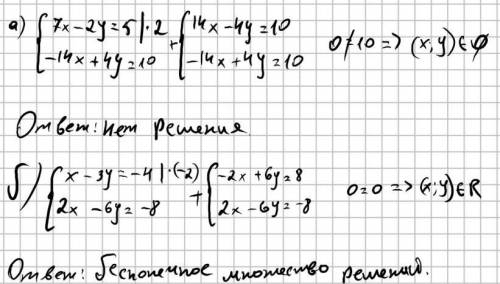 а) { 7x-2y=5 |·2 + { 14x-4y=10 0≠10 => (x;y)∈∅
-14x+4y=10 -14x+4y=10
Ответ: нет решения
б) { x-3y=-4 |·(-2) + { -2x+6y=8 0=0 => (x;y)∈R
2x-6y=-8 2x-6y=-8
Ответ: бесконечное множество решений.